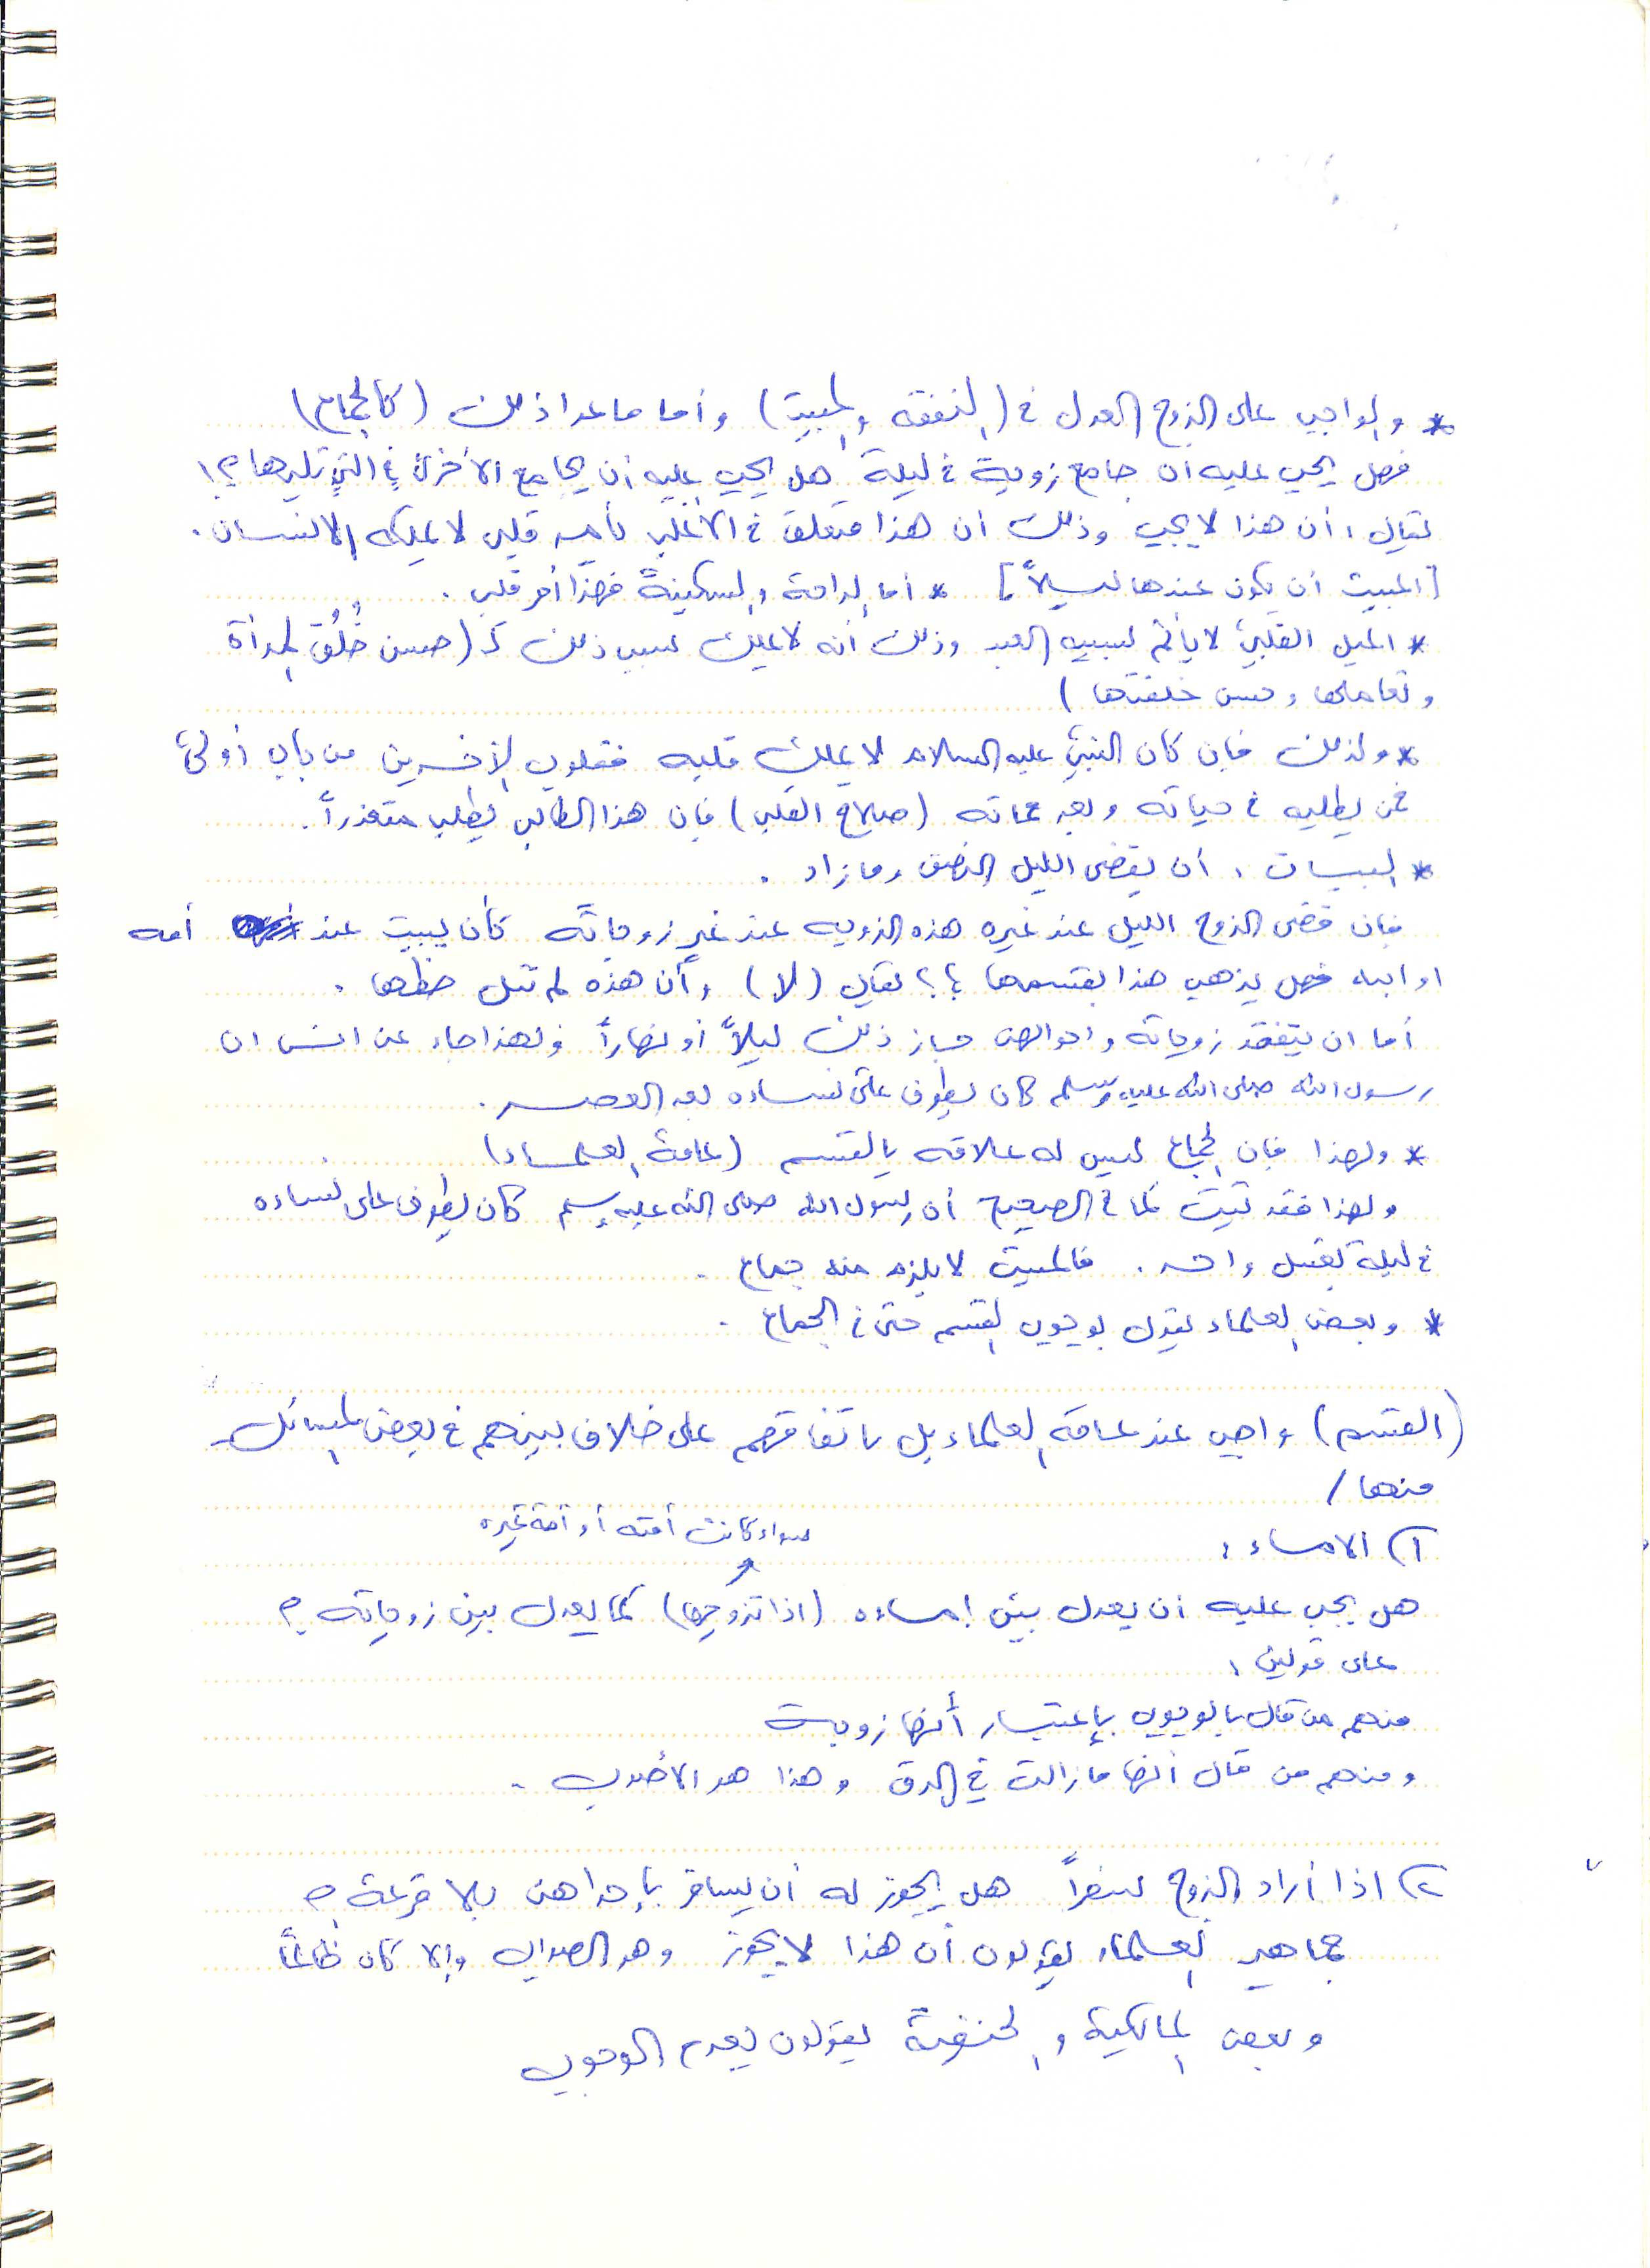 * والواجب على الزوج العدل في (النفقة والمبيت) وأما ما عدا ذلك (كالجماع)
فهل يجب عليه ان جامع زوجة في ليلة هل يجب عليه أن يجامع الأخرى في التي تليها ؟!
يقال : أن هذا لا يجب وذلك ان هذا متعلق في الأغلب بأمر قلبي لا يملكه الانسان .
[المبيت أن يكون عندها ليلاً] * أما الراحة والسكينة فهذا أمر قلبي .
* الميل القلبي لا يأثم بسببه العبد وذلك أنه لا يملك سبب ذلك كـ (حسن خُلُق المرأة
وتعاملها وحسن خلقتها)
* ولذلك فإن كان النبي عليه السلام لا يملك قلبه فقلوب الآخرين من باب أولى
فمن يطلبه في حياته وبعد مماته (صلاح القلب) فإن هذا الطالب يطلب متعذراً .
* البيات : أن يقضي الليل النصف وما زاد .
فإن قضى الزوج الليل عند غيره هذه الزوجه عند غير زوجاته كأن يبيت عند أمه
او ابنه فهل يذهب هذا بقسمها ؟؟ يقال (لا) وأن هذه لم تنل حظها .
أما ان يتفقد زوجاته واحوالهن جاز ذلك ليلاً أو نهاراً ولهذا جاء عن انس ان
رسول الله صلى الله عليه وسلم كان يطوف على نساءه بعد العصر .
* ولهذا فإن الجماع ليس له علاقه بالقسم (عامة العلماء)
ولهذا فقد ثبت كما في الصحيح أن رسول الله صلى الله عليه وسلم كان يطوف على نساءه
في ليلة بغسل واحد . فالمبيت لا يلزم منه جماع .
* وبعض العلماء يقول بوجوب القسم حتى في الجماع .
(القسم) واجب عند عامة العلماء بل باتفاقهم على خلاف بينهم في بعض المسائل
منها /
١) الاماء :
سواء كانت أمته أو أمة غيره
هل يجب عليه أن يعدل بين إماءه (اذا تزوجها) كما يعدل بين زوجاته ؟
على قولين :
منهم من قال بالوجوب بإعتبار أنها زوجة
ومنهم من قال أنها مازالت في الرق وهذا هو الأصوب .
٢) اذا أراد الزوج سفراً هل يجوز له أن يسافر بإحداهن بلا قرعة ؟
جماهير العلماء يقولون أن هذا لا يجوز وهو الصواب وإلا كان ظالماً
وبعض المالكية والحنفية يقولون بعدم الوجوب